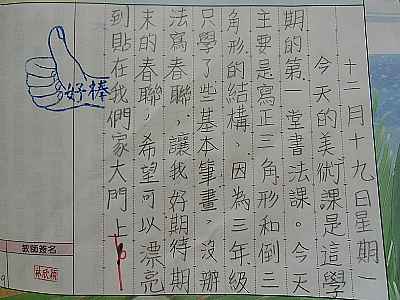 十二月十九日星期一
今天的美術課是這學
期的第一堂書法課。今天
主要是寫正三角形和倒三
角形的結構，因為三年級
只學了些基本筆畫，沒辦
法寫春聯，讓我好期待期
末的春聯，希望可以漂亮
到貼在我們家大門上。
好棒
教師簽名